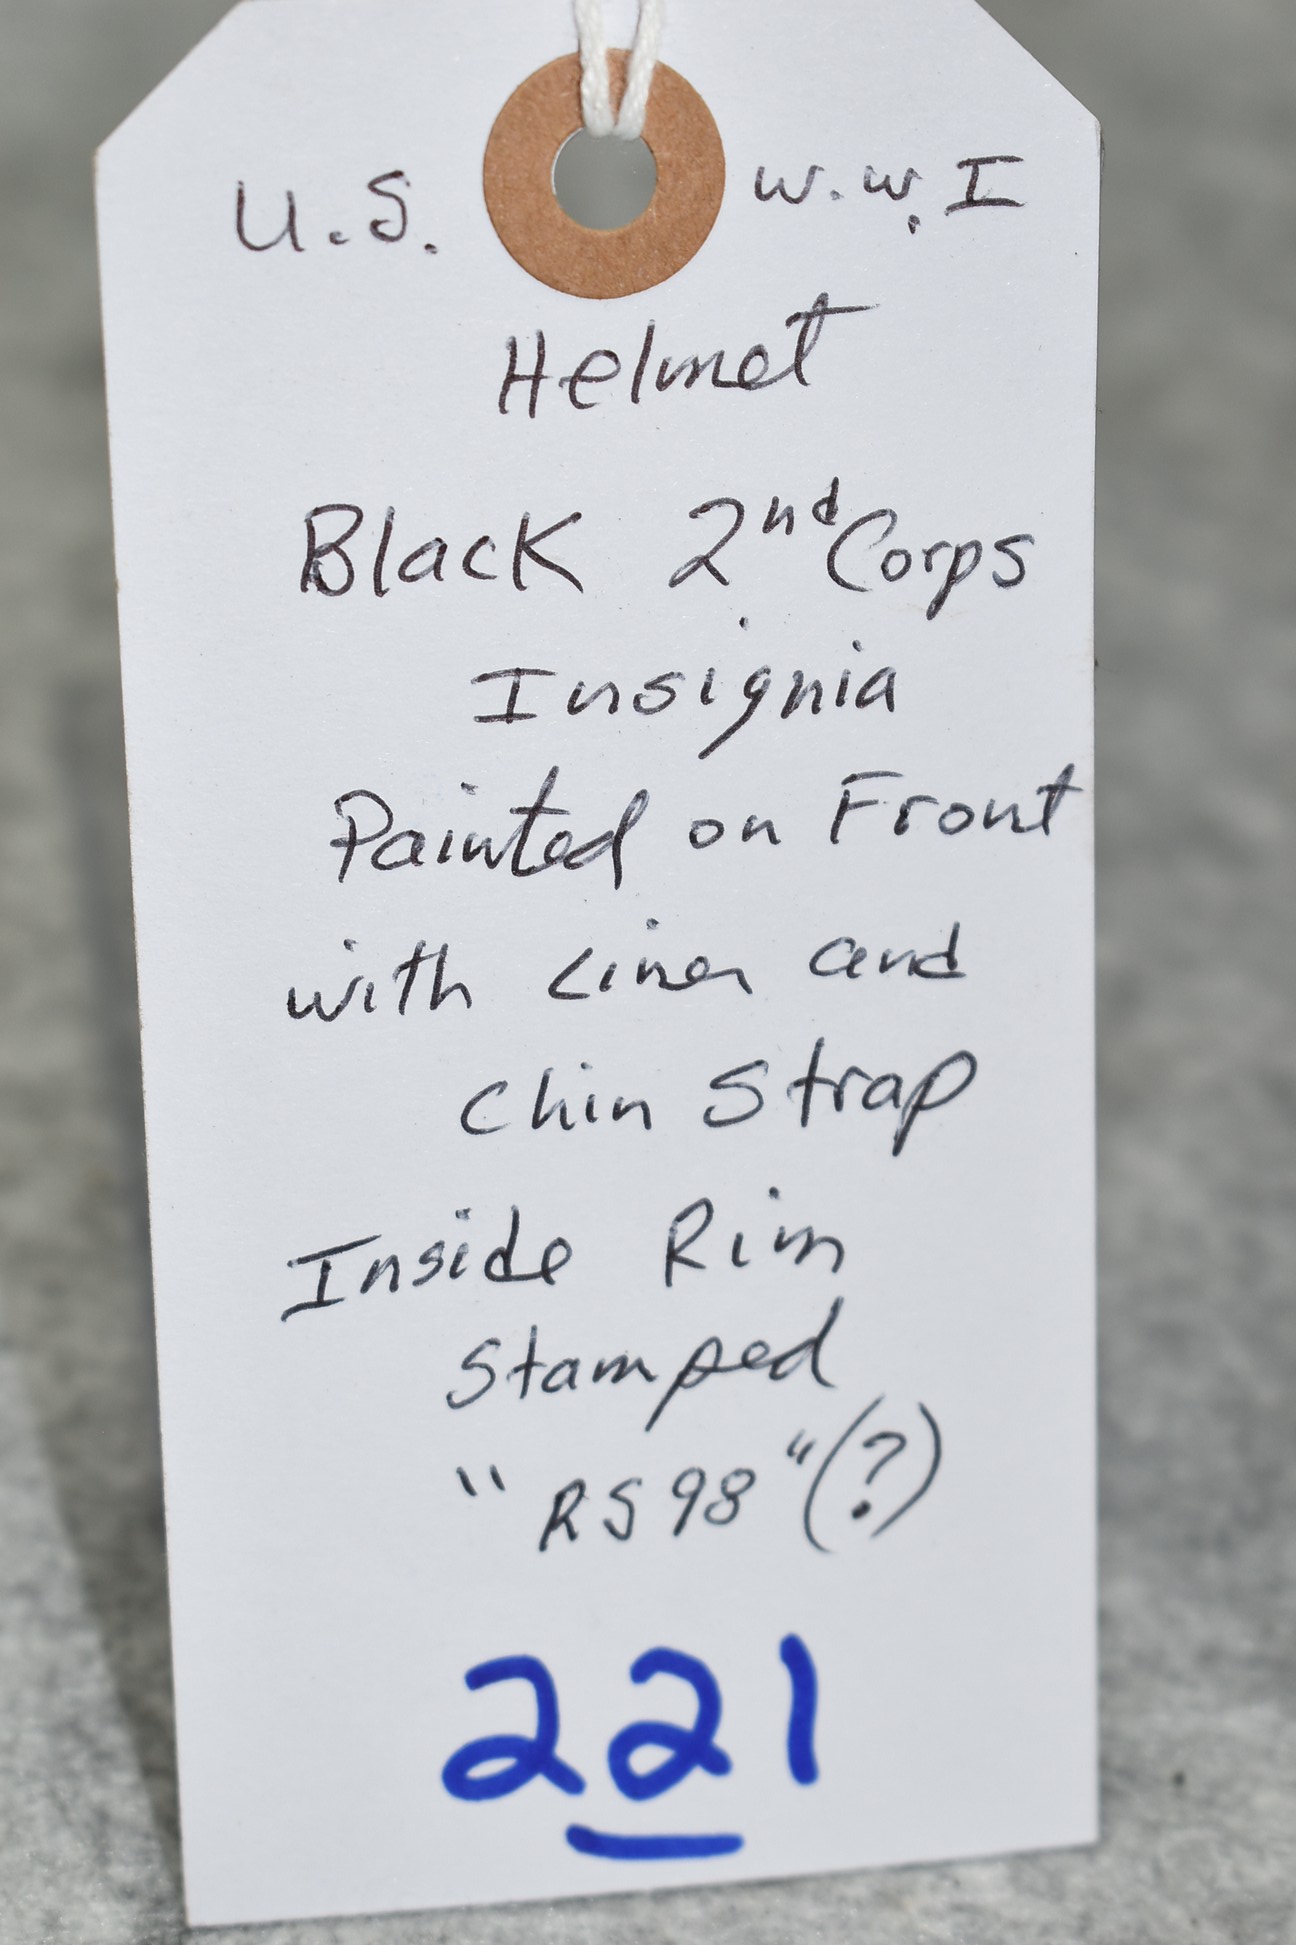 U.S. W.W.I
Helmet
Black 2nd Corps
Insignia
Painted on Front
with Liner and
Chin Strap
Inside Rim
Stamped
"RS98"(?)
221